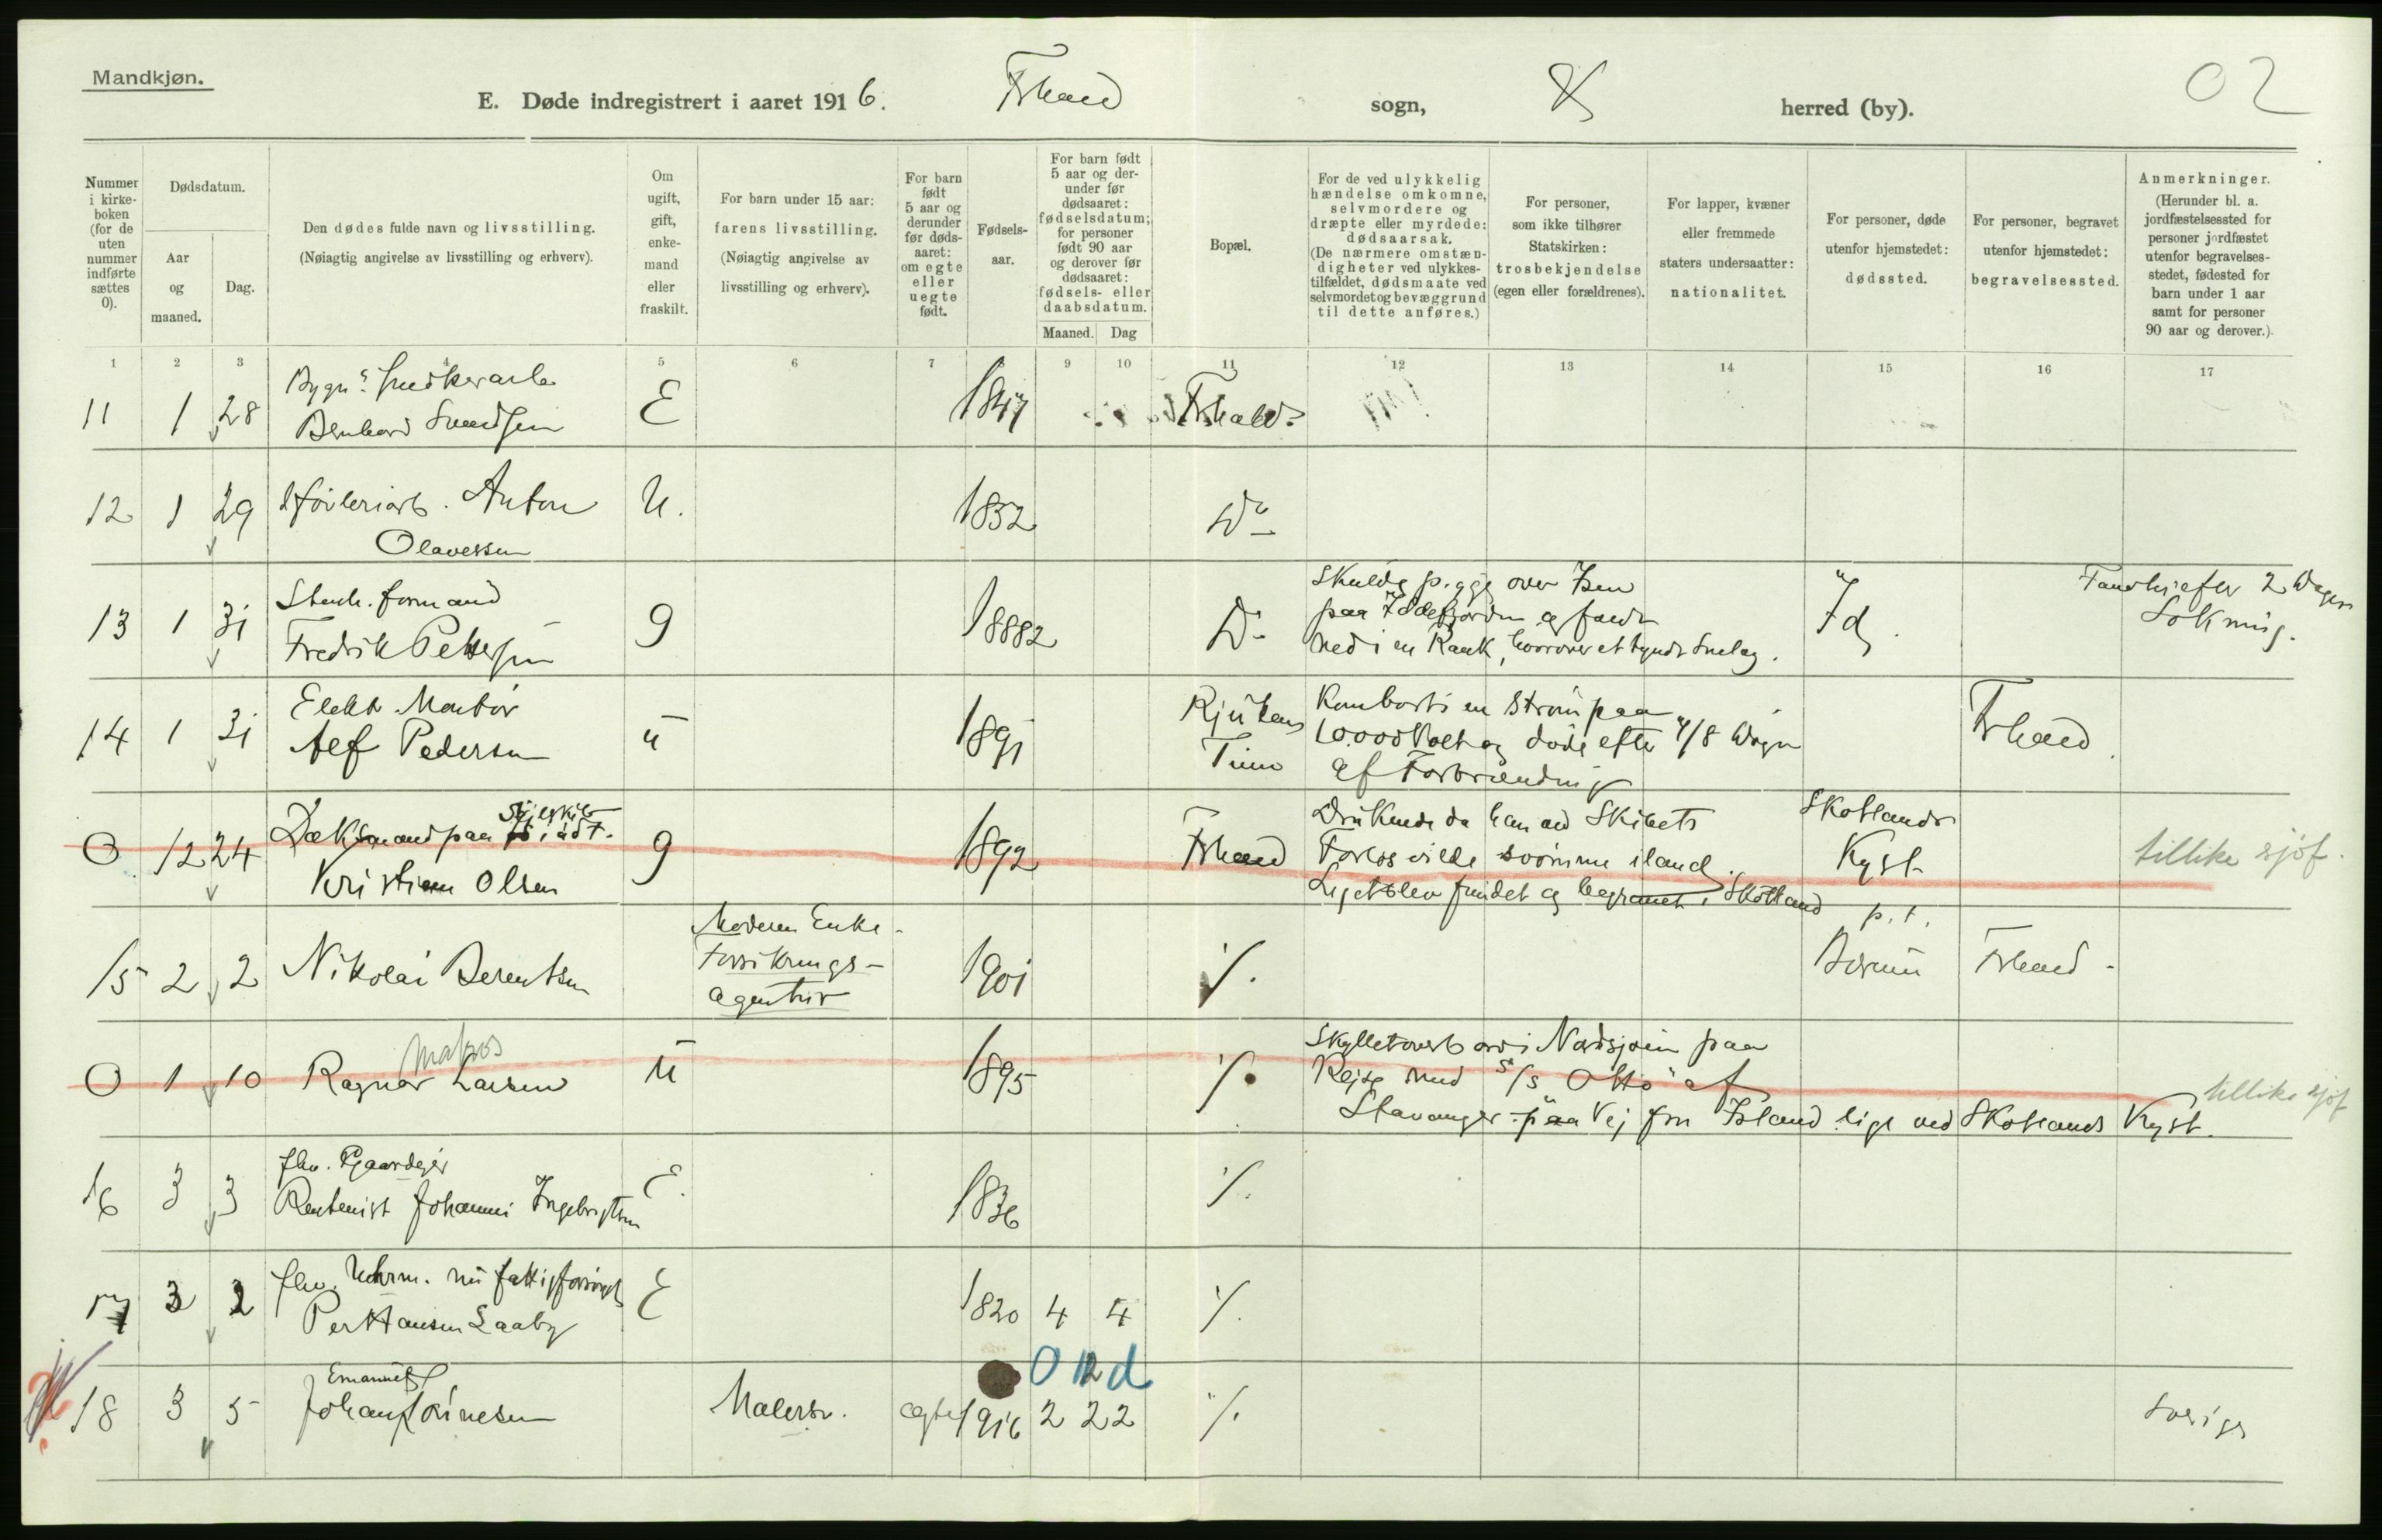 Mandkjøn.
E. Døde indregistrert i aaret 1916. Fshald sogn, herred (by).
02
Nummer i kirkeboken (for de uten nummer indførte sættes 0).
Dødsdatum.
Aar og maaned.
Dag.
Den dødes fulde navn og livsstilling.
(Nøiagtig angivelse av livsstilling og erhverv).
Om ugift, gift, enkemand eller fraskilt.
For barn under 15 aar: farens livsstilling.
(Nøiagtig angivelse av livsstilling og erhverv).
For barn født 5 aar og derunder før dødsaaret: om egte eller uegte født.
Fødselsaar.
For barn født 5 aar og derunder før dødsaaret: fødselsdatum; for personer født 90 aar og derover før dødsaaret: fødsels- eller daabsdatum.
Maaned. Dag
Bopæl.
For de ved ulykkelig hændelse omkomne, selvmordere og dræpte eller myrdede: dødsaarsak.
(De nærmere omstændigheter ved ulykkestilfældet, dødsmaate ved selvmordet og bevæggrund til dette anføres.)
For personer, som ikke tilhører Statskirken: trosbekjendelse (egen eller forældrenes).
For lapper, kvæner eller fremmede staters undersaatter: nationalitet.
For personer, døde utenfor hjemstedet: dødssted.
For personer, begravet utenfor hjemstedet: begravelsessted.
Anmerkninger.
(Herunder bl. a. jordfæstelsessted for personer jordfæstet utenfor begravelsesstedet, fødested for barn under 1 aar samt for personer 90 aar og derover.)
1 2 3 4 5 6 7 9 10 11 12 13 14 15 16 17
11 1 28 Bygn.s Snedkerarb. E 1847 Fshald.
Bernhard Svendsen
12 1 29 Høvleriarb. Anton U. 1852 Do
Olavessen
13 1 31 Stenh. formand g 18882 Do Skulde pigge over Isen Id. Fandt efter 2 Dages
Fredrik Pettersen paa Iddefjorden og faldt Sökning.
ned i en Raak, hvorover et tyndt Snelag.
14 1 31 Elekt. Montör u 1891 Rjukan Kom borti en Ström paa Fshald
Alf Pedersen Tinn 10.000 Volt og döde efter 7/8 Dögn
af Forbrænding
0 12 24 Dæksmand paa Sejlskib g 1892 Fshald Druknede da han ved Skibets Skotlands tillike sjöf.
Kristian Olsen Forlis vilde svömme iland. Kyst
Liget blev fundet og begravet i Skotland
15 2 2 Nikolai Berentsen Moderen Enke - 1901 p.t. Fshald -
Forsikrings-
agentur
0 1 10 Ragnar Larsen matros u 1895 Skyllet overbord i Nordsjøen paa
Rejse med S/S "Otto" af tillike sjöf
Stavanger paa Vej fra Island lige ved Skotlands Kyst.
16 3 3 fhv. Gaardejer E. 1836
Rentenist Johannes Ingebrigtsen
17 3 2 fhv. Uhrm. nu fattigforsörget E 1820 4 4
Per Hansen Laaby
0 12 d
18 3 5 Johan Emanuel Malersv. ægte 1916 2 22 Sverige